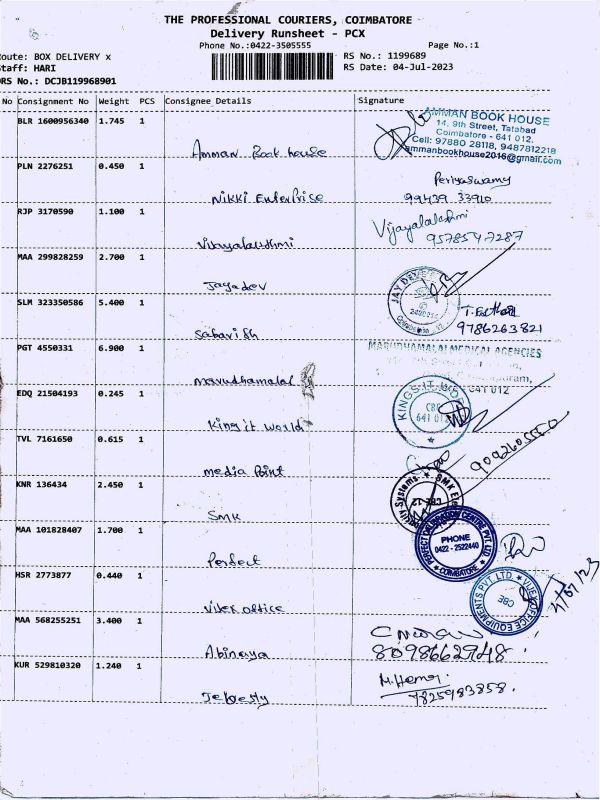 THE PROFESSIONAL COURIERS, COIMBATORE
Delivery Runsheet - PCX
Phone No.:0422-3505555 Page No.:1
Route: BOX DELIVERY x RS No.: 1199689
Staff: HARI RS Date: 04-Jul-2023
DRS No.: DCJB119968901
No Consignment No Weight PCS Consignee Details Signature
BLR 1600956340 1.745 1
AMMAN BOOK HOUSE
14, 9th Street, Tatabad
Coimbatore - 641 012.
Cell: 97880 28118, 9487812218
ammanbookhouse2016@gmail.com
Amman Book house
PLN 2276251 0.450 1
Periyaswamy
Nikki Enterprise 99439 33910
RJP 3170590 1.100 1
Vijayalakshmi
9578547287
Vijayalakshmi
MAA 299829259 2.700 1
Jayadev
JAY DEV
SLM 323350586 5.400 1
9786263821
Sabarish
PGT 4550331 6.900 1
MARUDHAMALAI MEDICAL AGENCIES
641 012
marudhamalai
EDQ 21504193 0.245 1
KINGS IT WORLD
CBE
641 012
King it world
TVL 7161650 0.615 1
media Point
KNR 136434 2.450 1
SMK
CBE-12
SMK
MAA 101828407 1.700 1
PHONE
0422 - 2522440
COIMBATORE
Perfect
HSR 2773877 0.440 1
OFFICE EQUIPMENTS PVT LTD
CBE
Vitex office
MAA 568255251 3.400 1
8098662948
Abinaya
KUR 529810320 1.240 1
M. Hema
7825983858